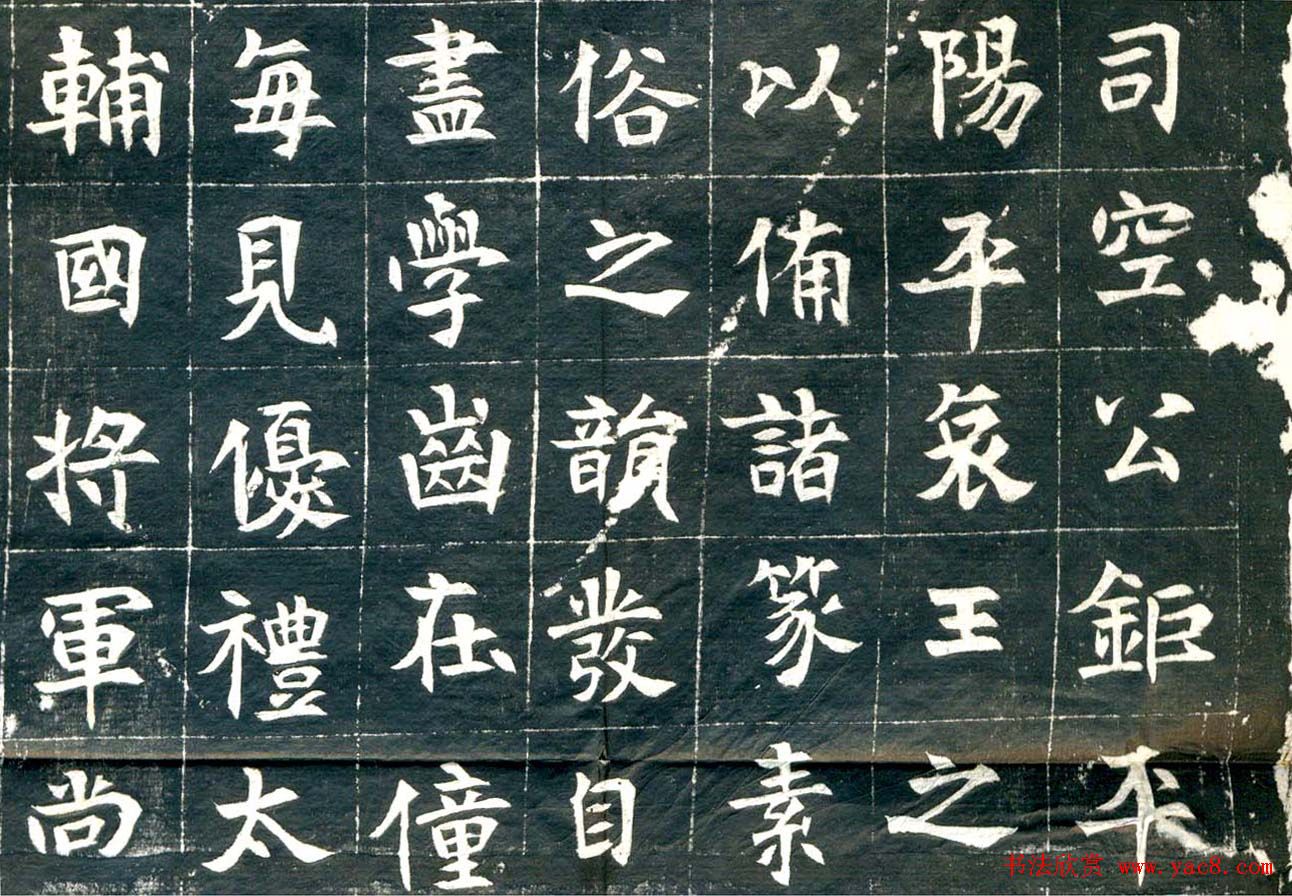 司空公鉅平
陽平哀王之
以備諸篆素
俗之韻發自
盡學齒在僮
每見優禮太
輔國將軍尚
书法欣赏 www.yac8.com